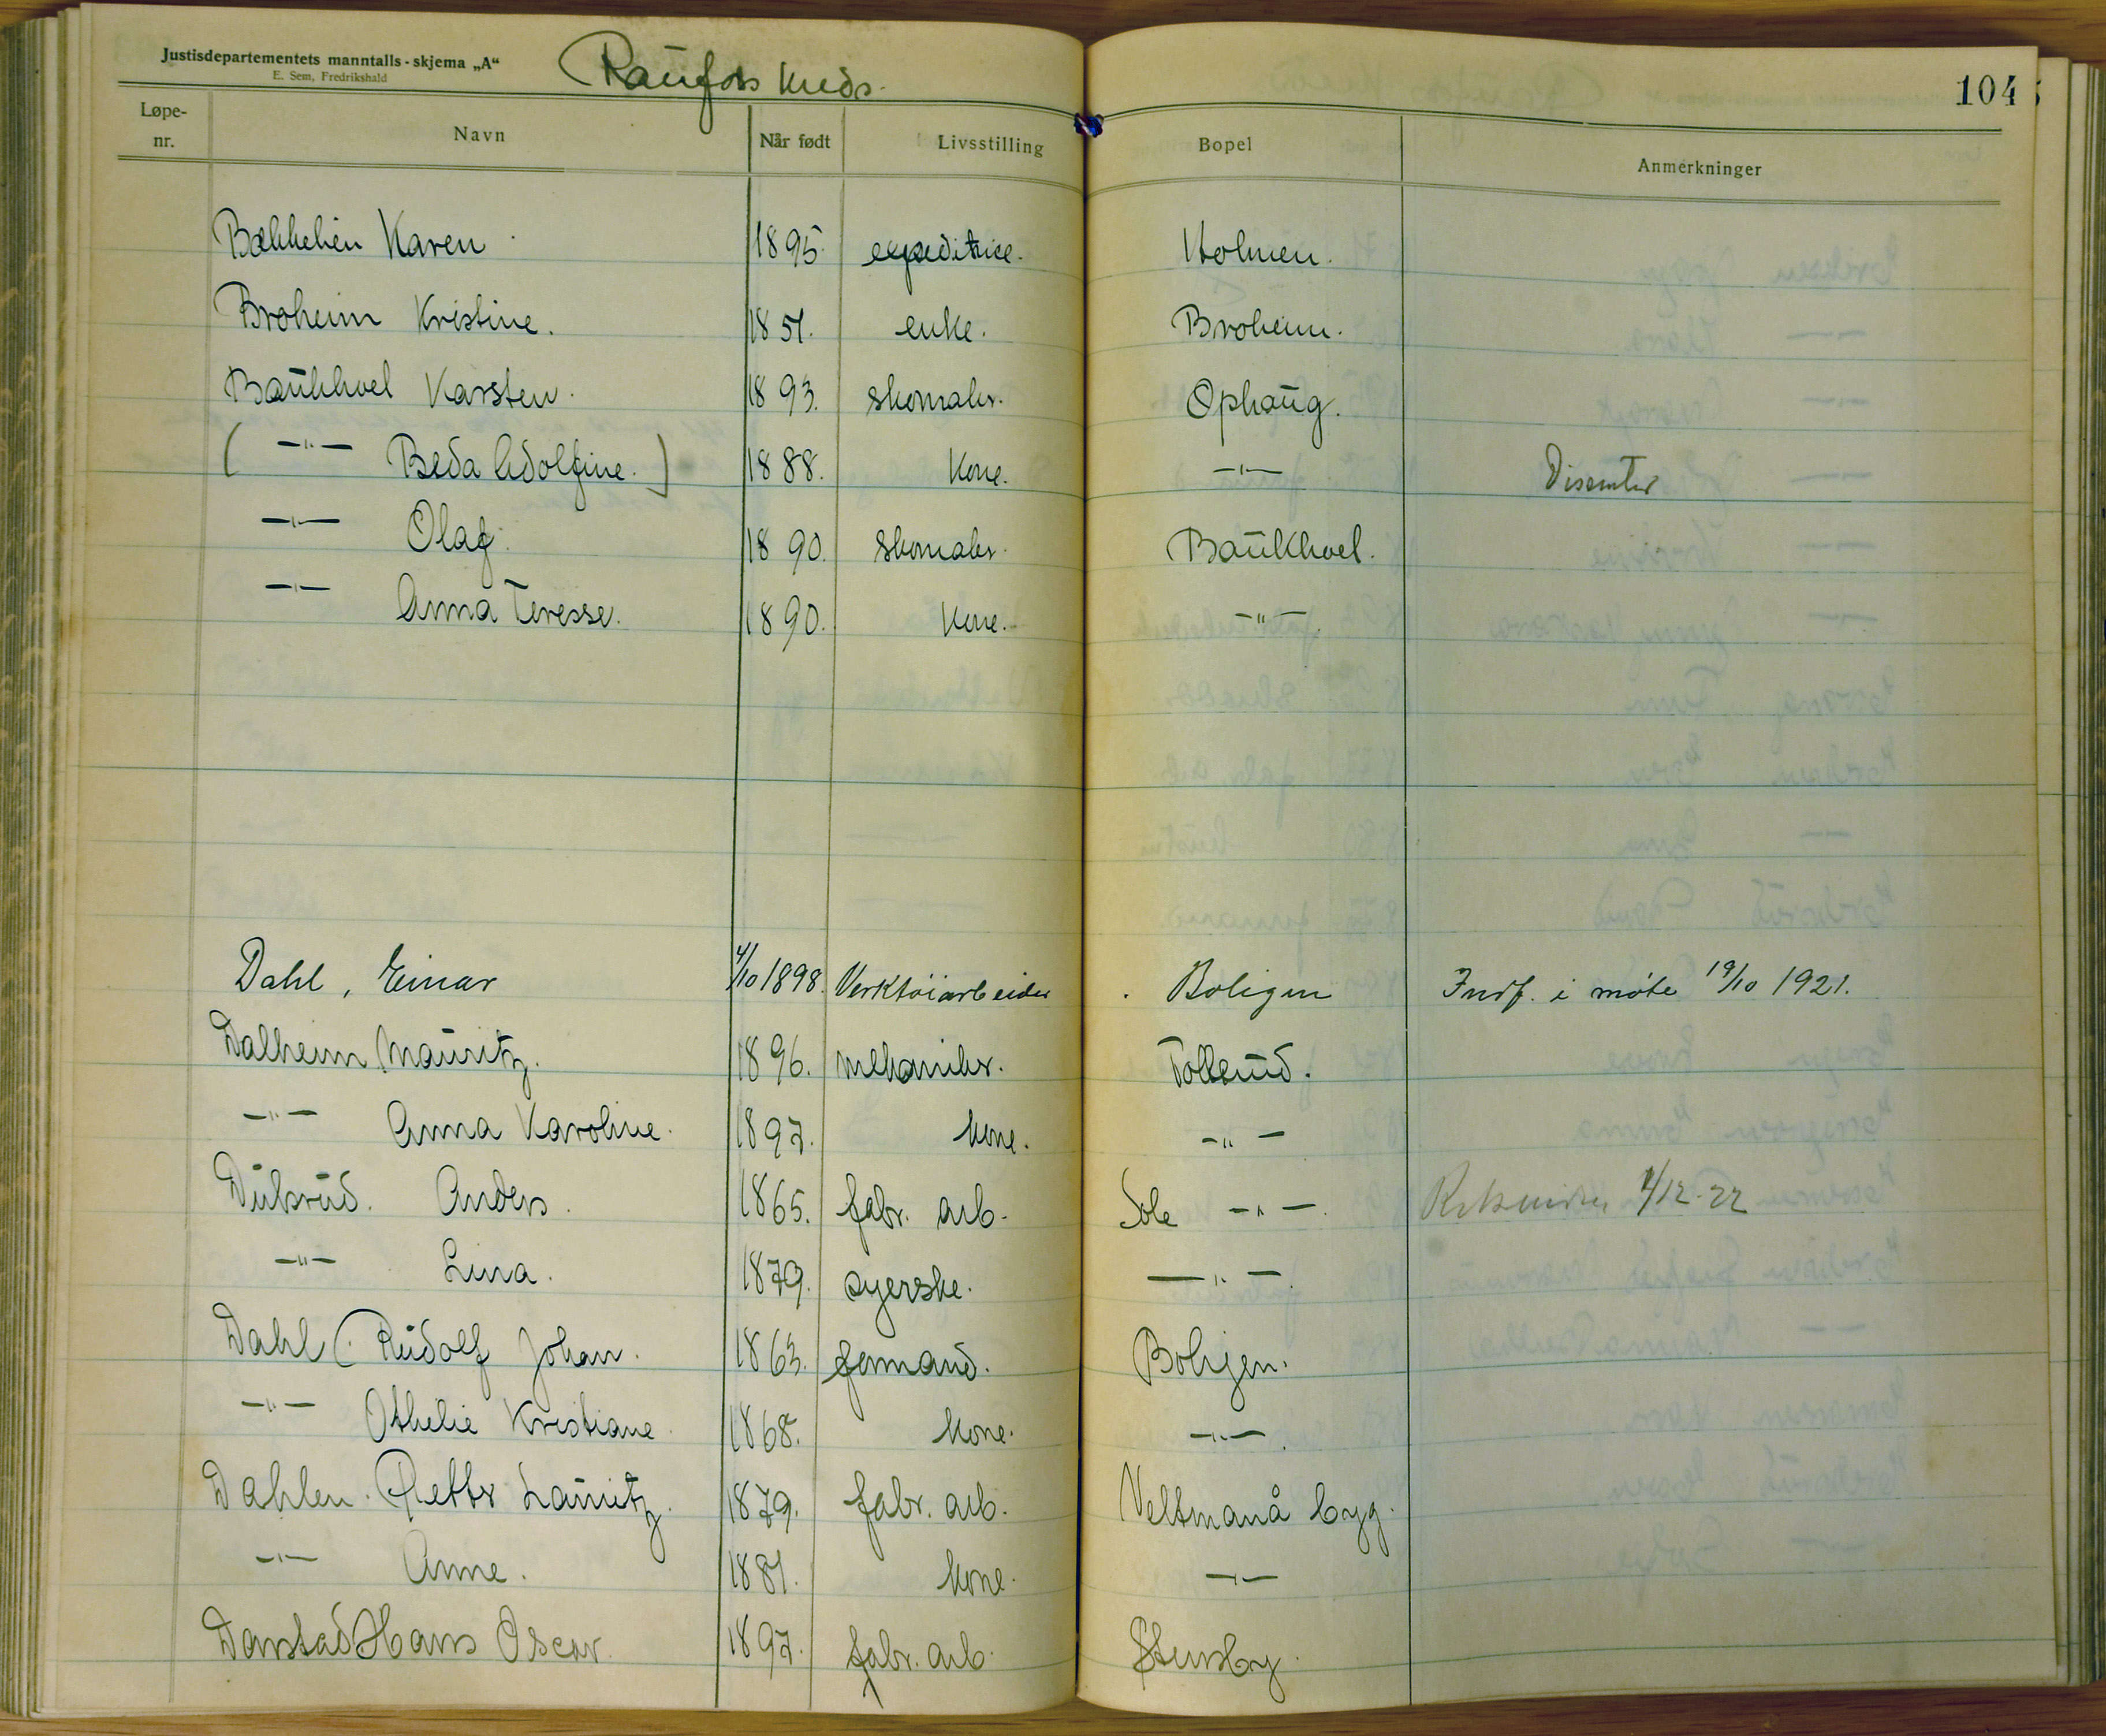 Justisdepartementets manntalls-skjema „A“
E. Sem, Fredrikshald
Raufoss kreds.
104
Løpe-nr. Navn Når født Livsstilling Bopel Anmerkninger
Bækkelien Karen 1895. expeditrice. Holmen.
Broheim Kristine. 1851. enke. Broheim.
Baukhoel Karsten. 1893. skomaker. Ophaug.
( —„— Beda Adolfine.) 1888. Kone. —„— Disenter
—„— Olaf. 1890. Skomaker. Baukhoel.
—„— Anna Teresse. 1890. Kone. —„—
Dahl, Einar 4/10 1898. Verktøiarbeider Boligen Indf. i møte 19/10 1921.
Dalheim Mauritz. 1896. mekaniker. Tollerud.
—„— Anna Karoline. 1897. kone. —„—
Dulsrud. Anders. 1865. fabr. arb. Sole —„—. 1/12-22
—„— Lina. 1879. syerske. —„—.
Dahl. Rudolf Johan. 1863. formand. Boligen.
—„— Othelie Kristiane 1868. kone. —„—.
Dahlen. Petter Lauritz. 1879. fabr. arb. Veltmanå byg.
—„— Anne. 1881. kone. —„—
Danstad Hans Oscar. 1897. fabr. arb. Stensby.